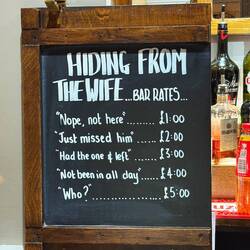 HIDING FROM
THE WIFE...BAR RATES...
"Nope, not here"......... £1:00
"Just missed him"...... £2:00
"Had the one & left"....... £3:00
"Not been in all day"...... £4:00
"Who?".................. £5:00